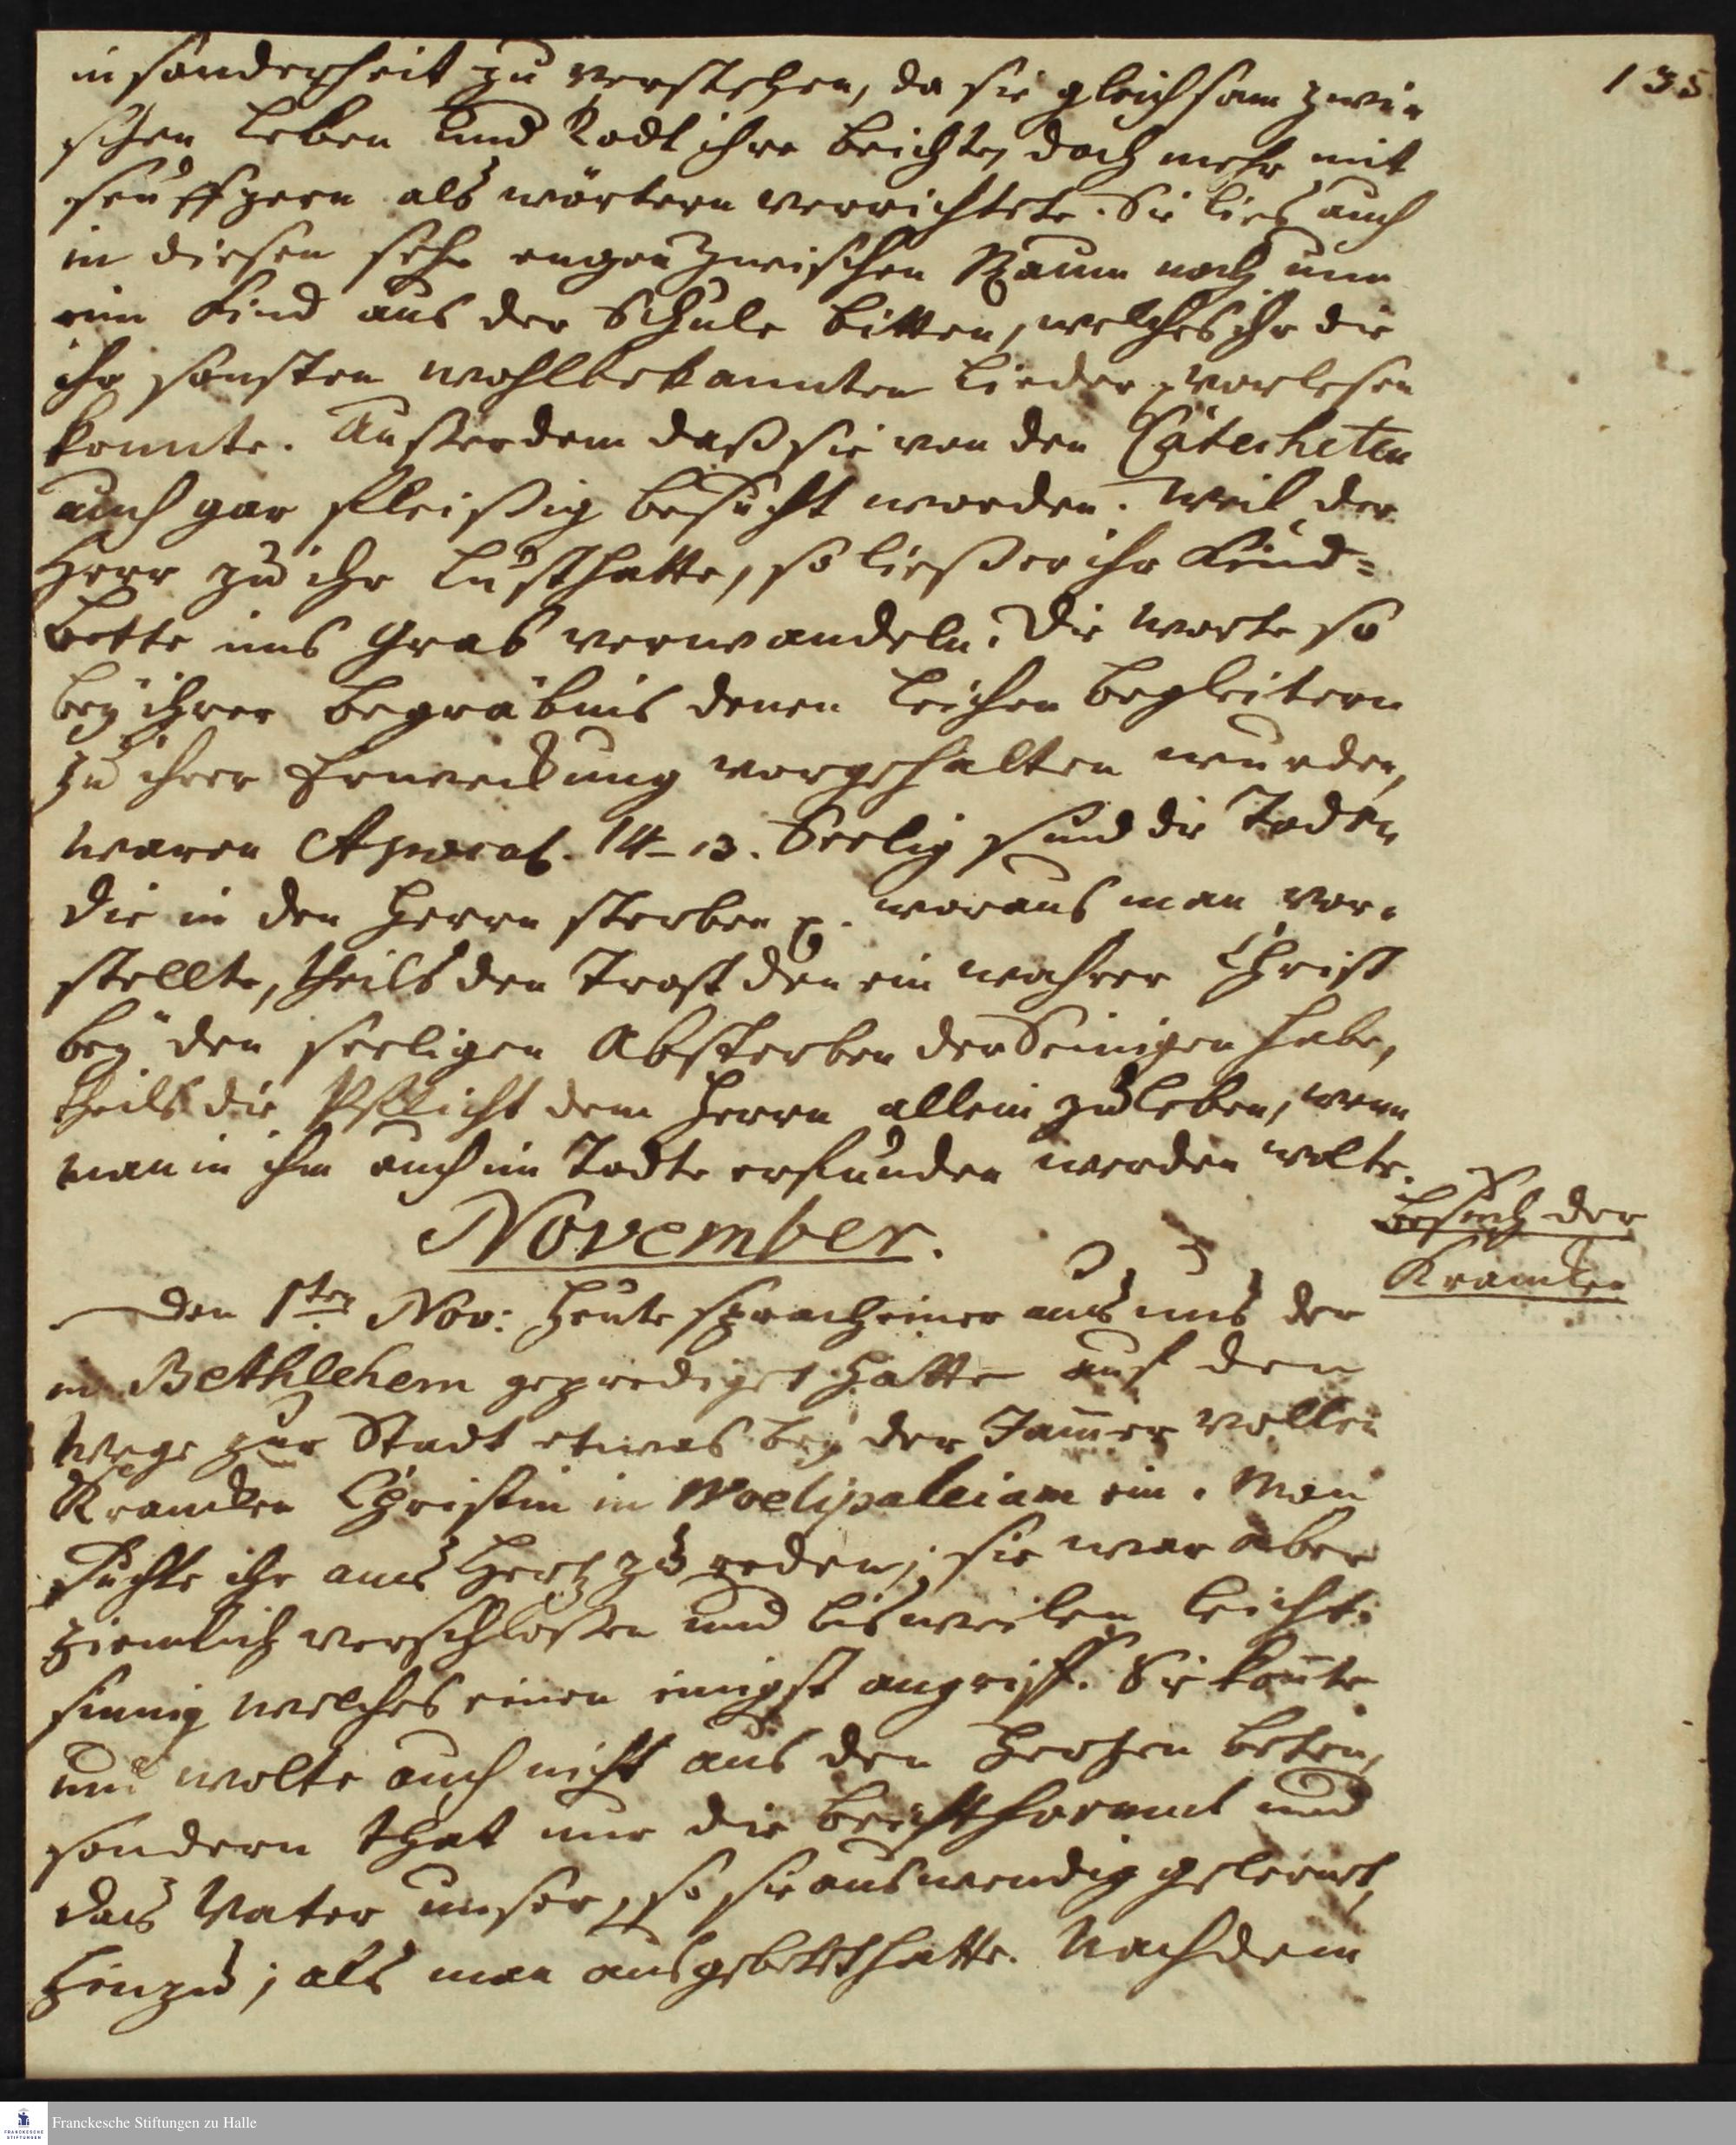 135
insonderheit zu verstehen, da sie gleichsam zwi-
schen Leben und Todt ihre Beichte, doch mehr mit
seuffzern als wörtern verrichtete. Sie lies auch
in diesen sehr engen Zwischen Raum noch um
ein Kind aus der Schule bitten, welches ihr die
ihr sonsten wohlbekannten Lieder vorlesen
konnte. Außerdem daß sie von den Catecheten
auch gar fleißig besucht worden. Weil der
Herr zu ihr Lust hatte, so ließ er ihr Kind=
bette ins Grab verwandeln. Die Worte so
bey ihrer Begräbnis denen Leichen Begleitern
zu ihrer Erweckung vorgehalten wurden,
waren Apocal. 14_13. Seelig sind die Toden
die in den Herrn sterben p. woraus man vor-
stellte, theils den Trost den ein wahrer Christ
bey den seeligen Absterben der Seinigen habe,
theils die Pflicht dem Herrn allein zu leben, wenn
man in ihm auch im Todte erfunden werden wolte.
November.
Besuch der
Krancken
Den 1ten Nov: Heute sprach einer aus uns der
in Bethlehem geprediget hatte auf den
Wege zur Stadt etwas bey der Jam̄er vollen
Krancken Christin in Woelipaleiam ein. Man
suchte ihr ans Hertz zu reden; sie war aber
ziemlich verschloßen und bisweilen leicht-
sinnig welches einen innigst angriff. Sie kon̄te
und wolte auch nicht aus den Hertzen beten,
sondern that nur die Beichtformul und
das Vater unser, so sie auswendig gelernet,
hinzu; als man ausgebetet hatte. Nachdem
Franckesche Stiftungen zu Halle
FRANCKESCHE
STIFTUNGEN